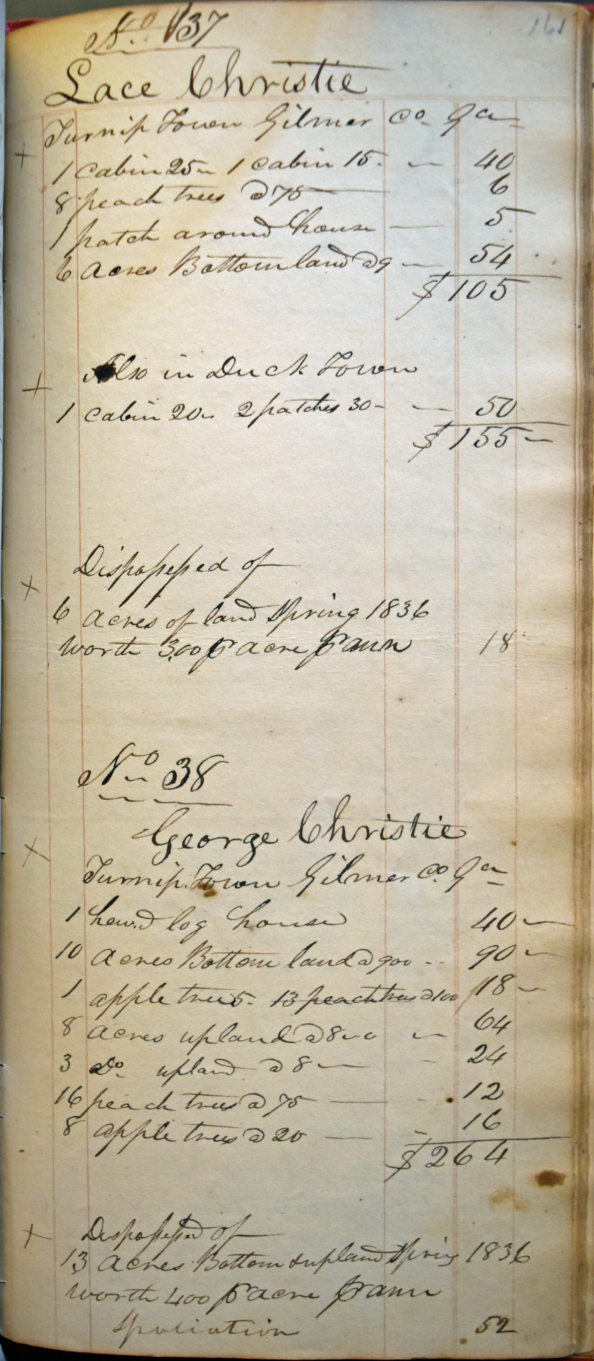 161
No 137
Lace Christie
Turnip Town Gilmer Co. Ga
1 cabin 25 1 cabin 15. 40
8 peach trees @ 75 6
1 patch around house 5
6 acres Bottom land @ 9 54
$ 105
Also in Duck Town
1 cabin 20 2 patches 30 50
$ 155
Dispossessed of
6 acres of land Spring 1836
worth 3.00 p acre p ann 18
No 38
George Christie
Turnip Town Gilmer Co Ga
1 hew.d log house 40
10 acres Bottom land @ 900 90
1 apple tree 5 13 peach trees @ 100 18
8 acres upland @ 8 64
3 do upland @ 8 24
16 peach trees @ 75 12
8 apple trees @ 20 16
$ 264
Dispossessed of
13 acres Bottom & upland Spring 1836
worth 400 p acre p ann
Spoliation 52